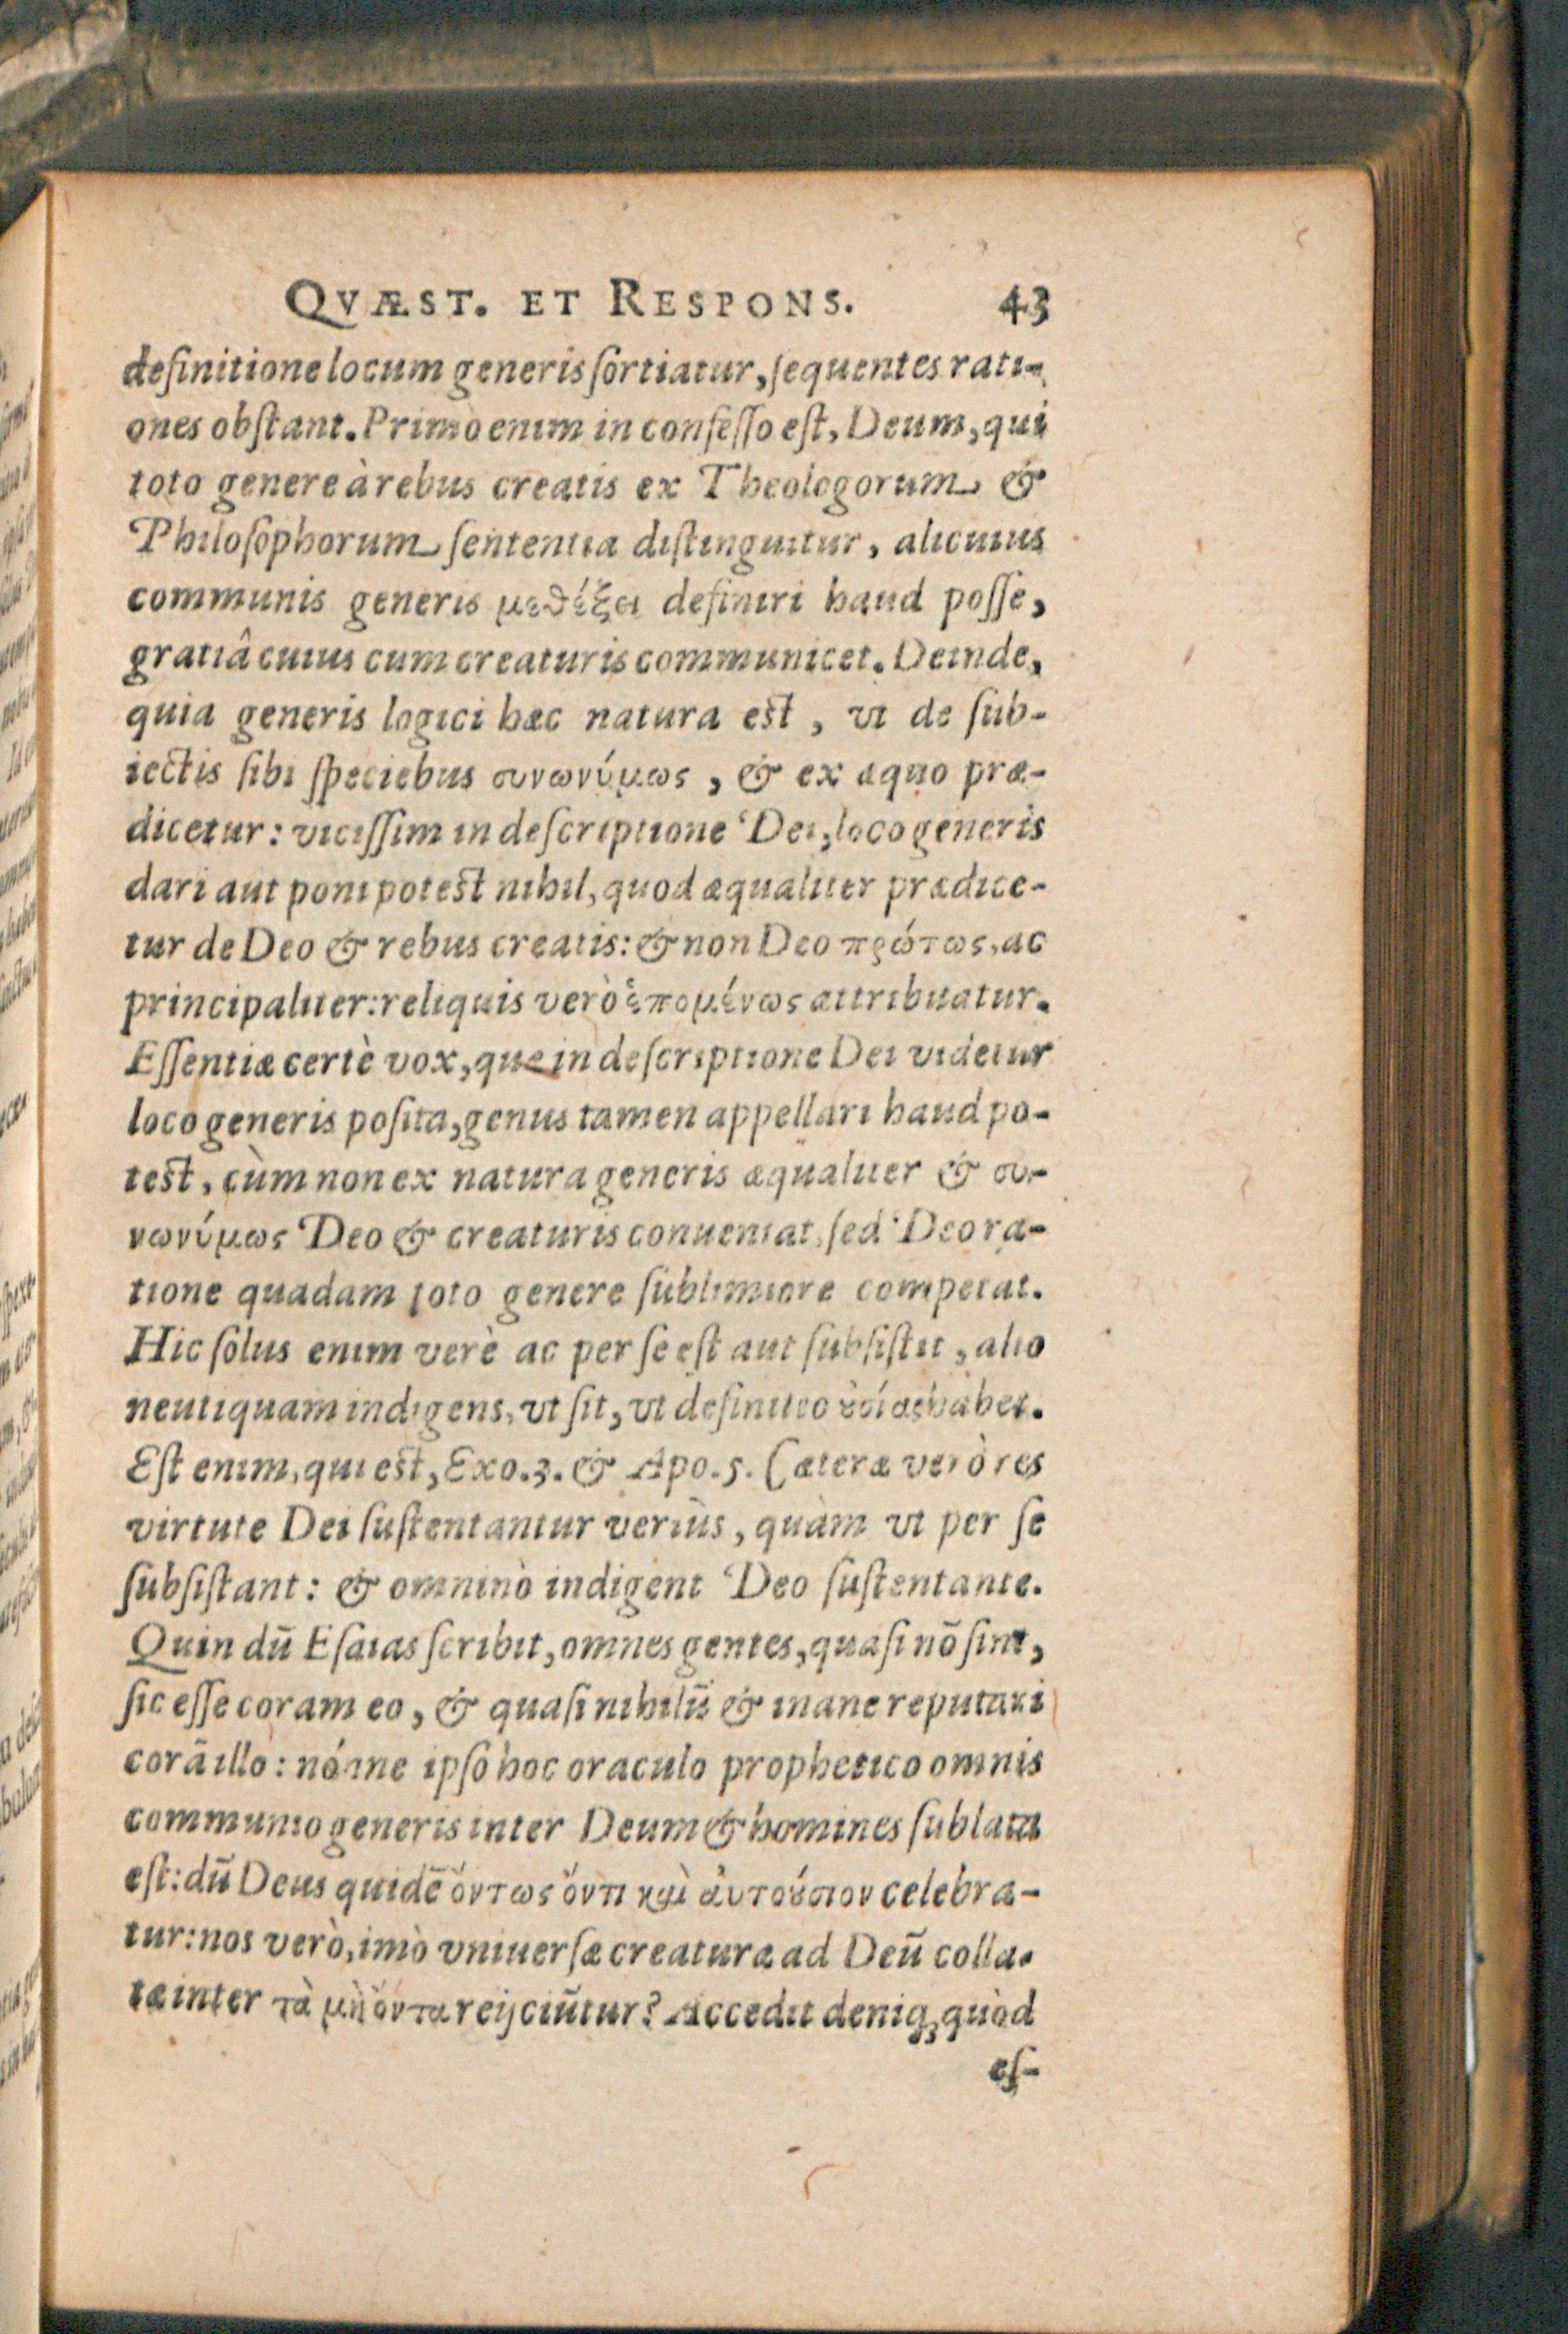 QVÆST. ET RESPONS. 43
definitione locum generis ſortiatur, ſequentes rati-
ones obſtant. Primò enim in confeſſo eſt, Deum, qui
toto genere à rebus creatis ex Theologorum &
Philoſophorum ſententia diſtinguitur, alicuius
communis generis μεθέξει definiri haud poſſe,
gratiâ cuius cum creaturis communicet. Deinde,
quia generis logici hæc natura est, vt de ſub-
iectis ſibi ſpeciebus συνωνύμως, & ex æquo præ-
dicetur: viciſſim in deſcriptione Dei, loco generis
dari aut poni potest nihil, quod æqualiter prædice-
tur de Deo & rebus creatis: & non Deo πρώτως, ac
principaliter: reliquis verò ἑπομένως attribuatur.
Eſſentiæ certè vox, quæ in deſcriptione Dei videtur
loco generis poſita, genus tamen appellari haud po-
test, cùm non ex natura generis æqualiter & συ-
νωνύμως Deo & creaturis conueniat, ſed Deo ra-
tione quadam toto genere ſublimiore competat.
Hic ſolus enim verè ac per ſe eſt aut ſubſiſtit, alio
neutiquam indigens, vt ſit, vt definitio ȣ̓σίας habet.
Eſt enim, qui est, Exo. 3. & Apo. 5. Cæteræ verò res
virtute Dei ſuſtentantur veriùs, quàm vt per ſe
ſubſiſtant: & omninò indigent Deo ſuſtentante.
Quin dū Eſaias ſcribit, omnes gentes, quaſi nō ſint,
ſic eſſe coram eo, & quaſi nihilū & inane reputari
corā illo: nónne ipſo hoc oraculo prophetico omnis
communio generis inter Deum & homines ſublata
eſt: dū Deus quidē ὄντως ὄντι καὶ ἀυτούσιον celebra-
tur: nos verò, imò vniuerſæ creaturæ ad Deū colla-
tæ inter τὰ μὴ ὄντα reijciūtur? Accedit deniq, quòd
eſ-